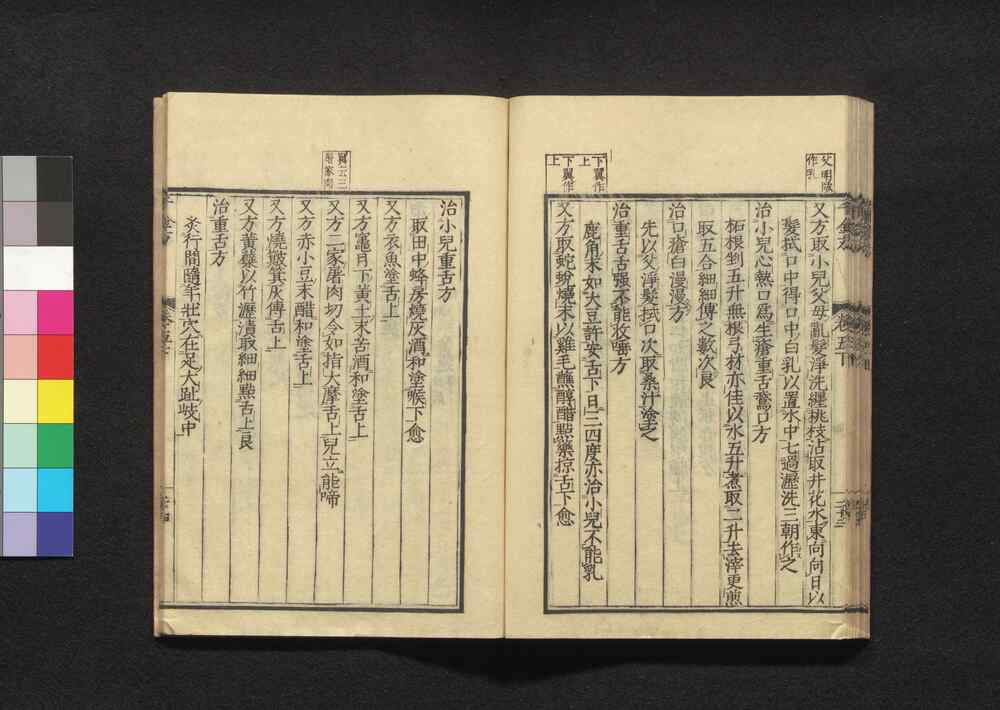 父明版
作乳
又方取小兒父母亂髮淨洗纏桃枝沾取井花水東向向日以
髮拭口中得口中白乳以置水中七過瀝洗三朝作之
治小兒心熱口爲生瘡重舌鵞口方
柘根剉五升無根弓材亦佳以水五升煮取二升去滓更煎
取五合細細傅之數數次良
治口瘡白漫漫方
先以父淨髮拭口次取桑汁塗之
下翼作
上
治重舌舌强不能收唾方
鹿角末如大豆許安舌下日三四度亦治小兒不能乳
下翼作
上
又方取蛇蛻燒末以雞毛蘸醇醋㸃藥掠舌下愈
治小兒重舌方
取田中蜂房燒灰酒和塗喉下愈
又方衣魚塗舌上
又方竈月下黃土末苦酒和塗舌上
翼云三
屠家肉
又方三家屠肉切令如指大摩舌上兒立能啼
又方赤小豆末醋和塗舌上
又方燒簸箕灰傅舌上
又方黃蘗以竹瀝漬取細細㸃舌上良
治重舌方
灸行間隨年壯穴在足大趾歧中